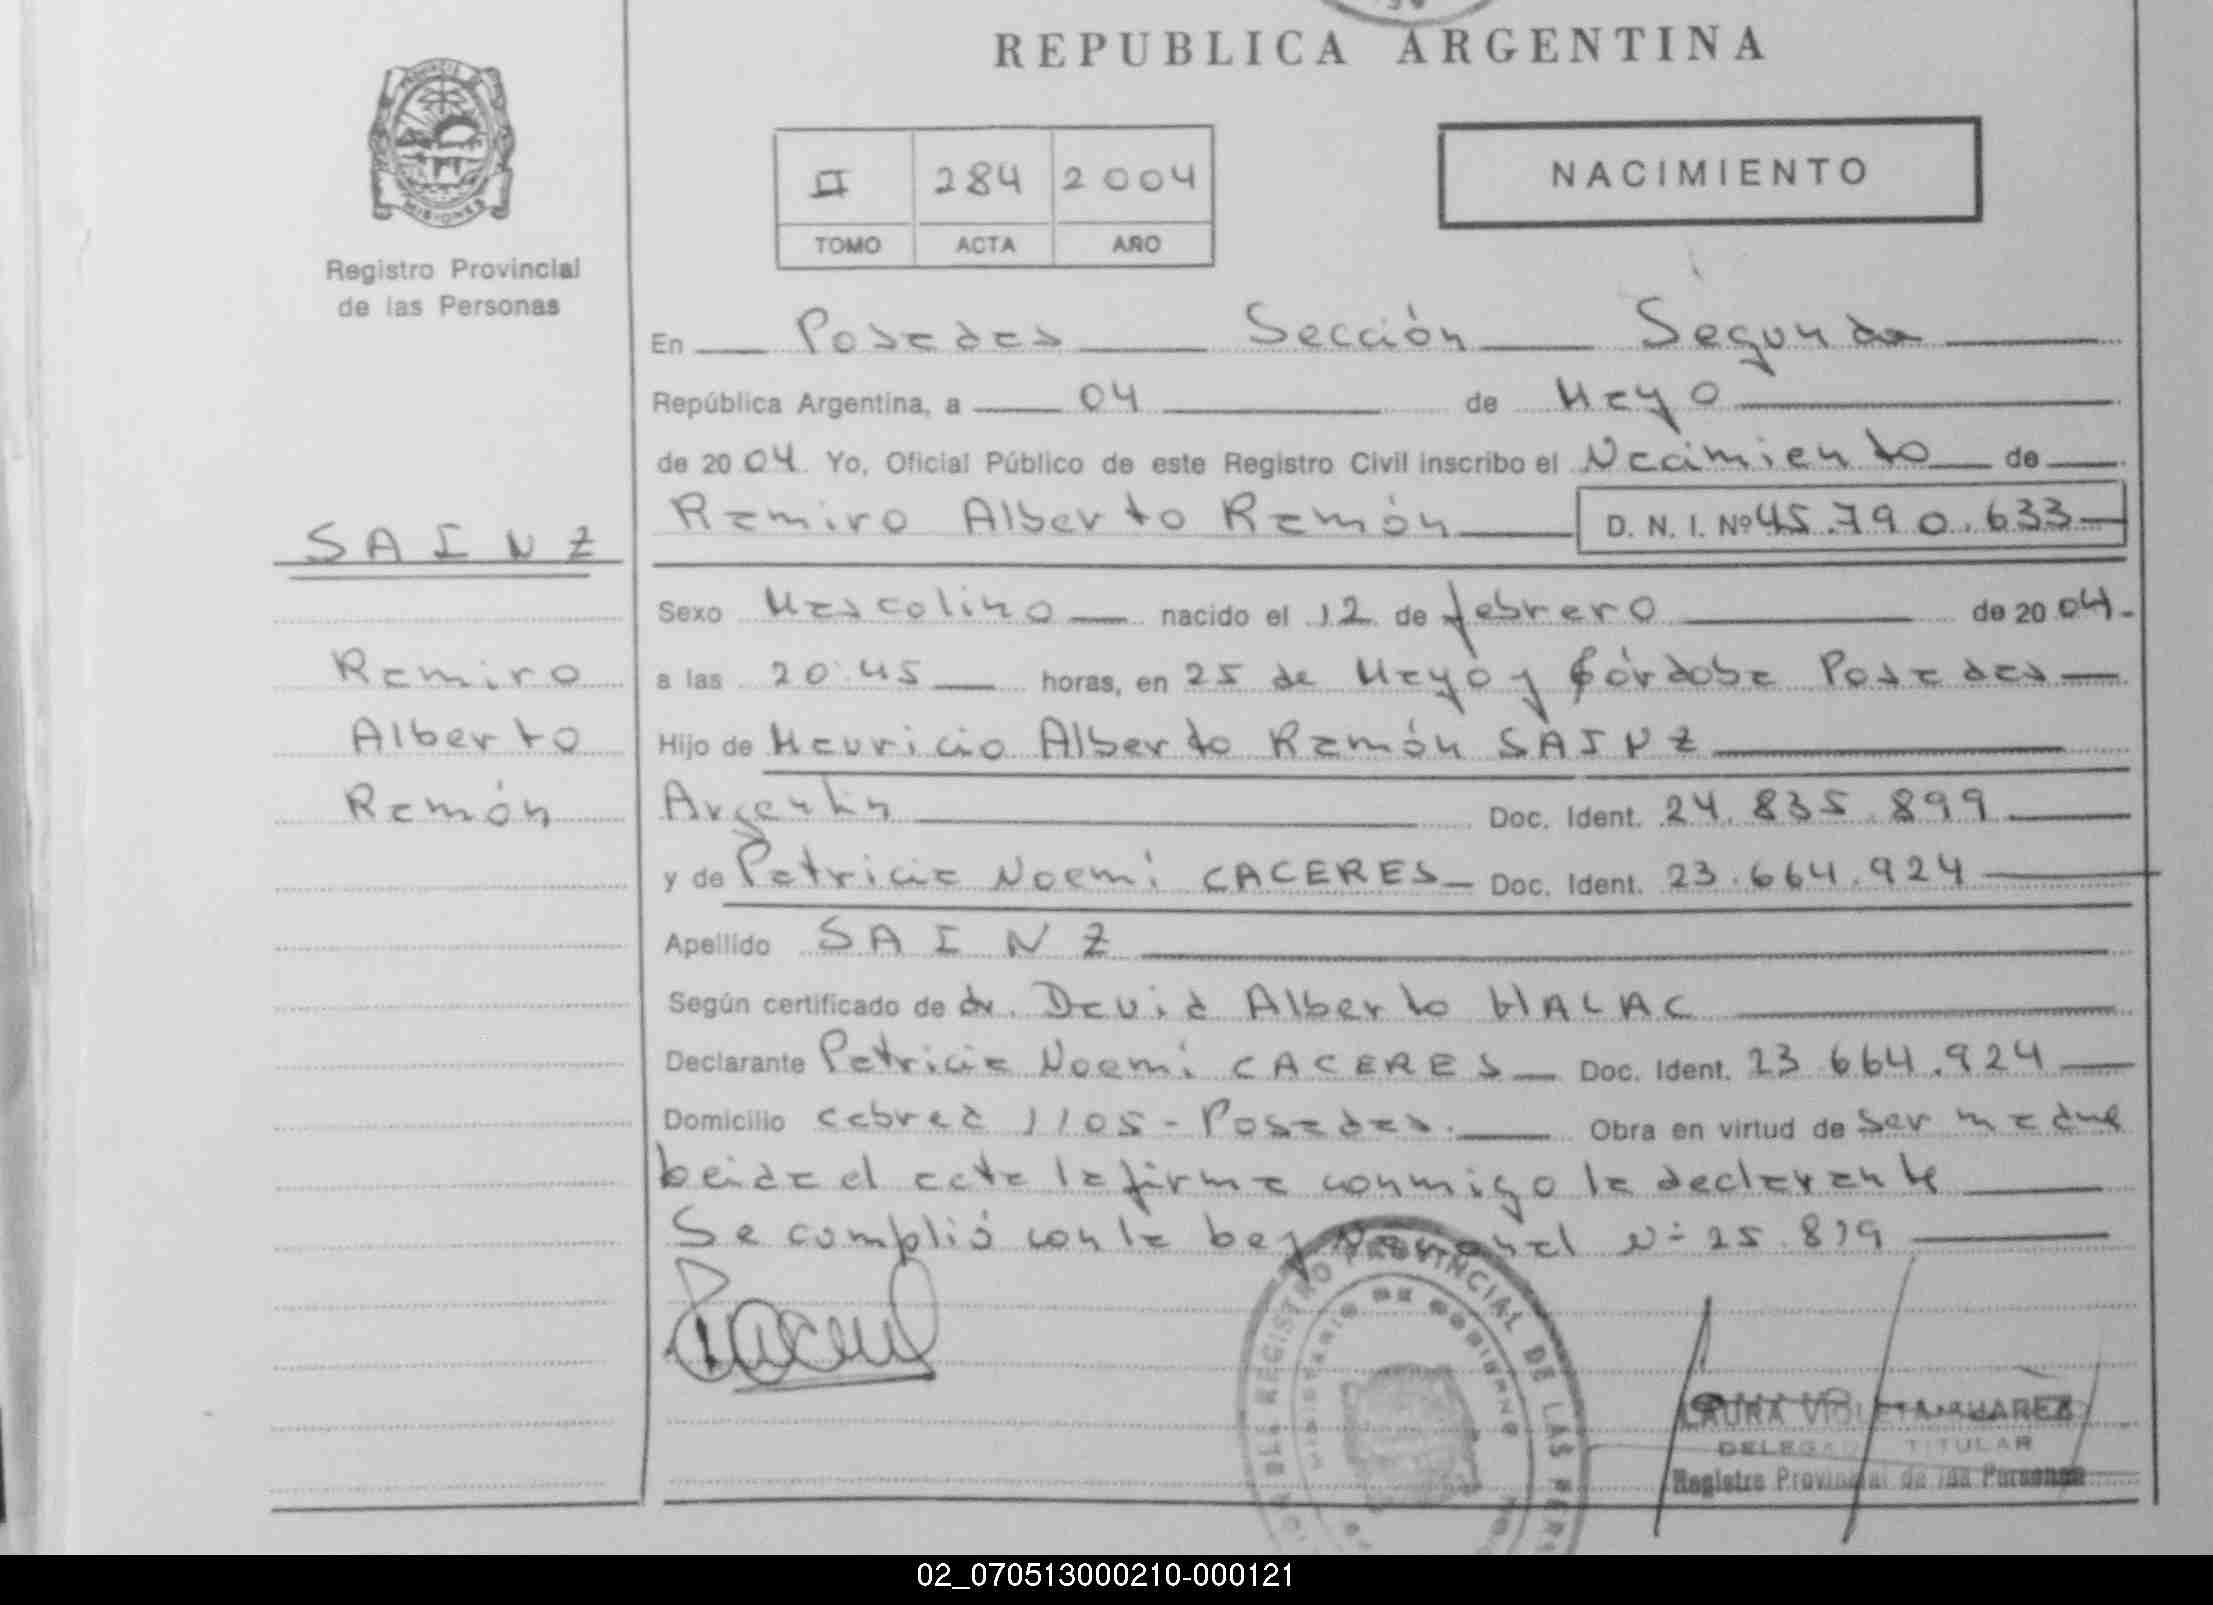 REPUBLICA ARGENTINA
PROVINCIA DE
MISIONES
Registro Provincial
de las Personas
II 284 2004
TOMO ACTA AÑO
NACIMIENTO
En Posadas Sección Segunda
República Argentina, a 04 de Mayo
de 2004 Yo, Oficial Público de este Registro Civil inscribo el Nacimiento de
Ramiro Alberto Ramón D. N. I. Nº 45.790.633
SAINZ
Ramiro
Alberto
Ramón
Sexo Masculino nacido el 12 de febrero de 2004.
a las 20:45 horas, en 25 de Mayo y Córdoba Posadas
Hijo de Mauricio Alberto Ramón SAINZ
Argentin Doc. Ident. 24.835.899
y de Patricia Noemí CACERES Doc. Ident. 23.664.924
Apellido SAINZ
Según certificado de dr. David Alberto HALAC
Declarante Patricia Noemí CACERES Doc. Ident. 23.664.924
Domicilio cabred 1105 - Posadas. Obra en virtud de ser madre
Leida el acta la firma conmigo la declarante
Se cumplió con la Ley Nº 25.819
REGISTRO PROVINCIAL DE LAS
MINISTERIO DE GOBIERNO
LAURA VIOLETA SUAREZ
DELEGADA TITULAR
Registro Provincial de las Personas
02_070513000210-000121